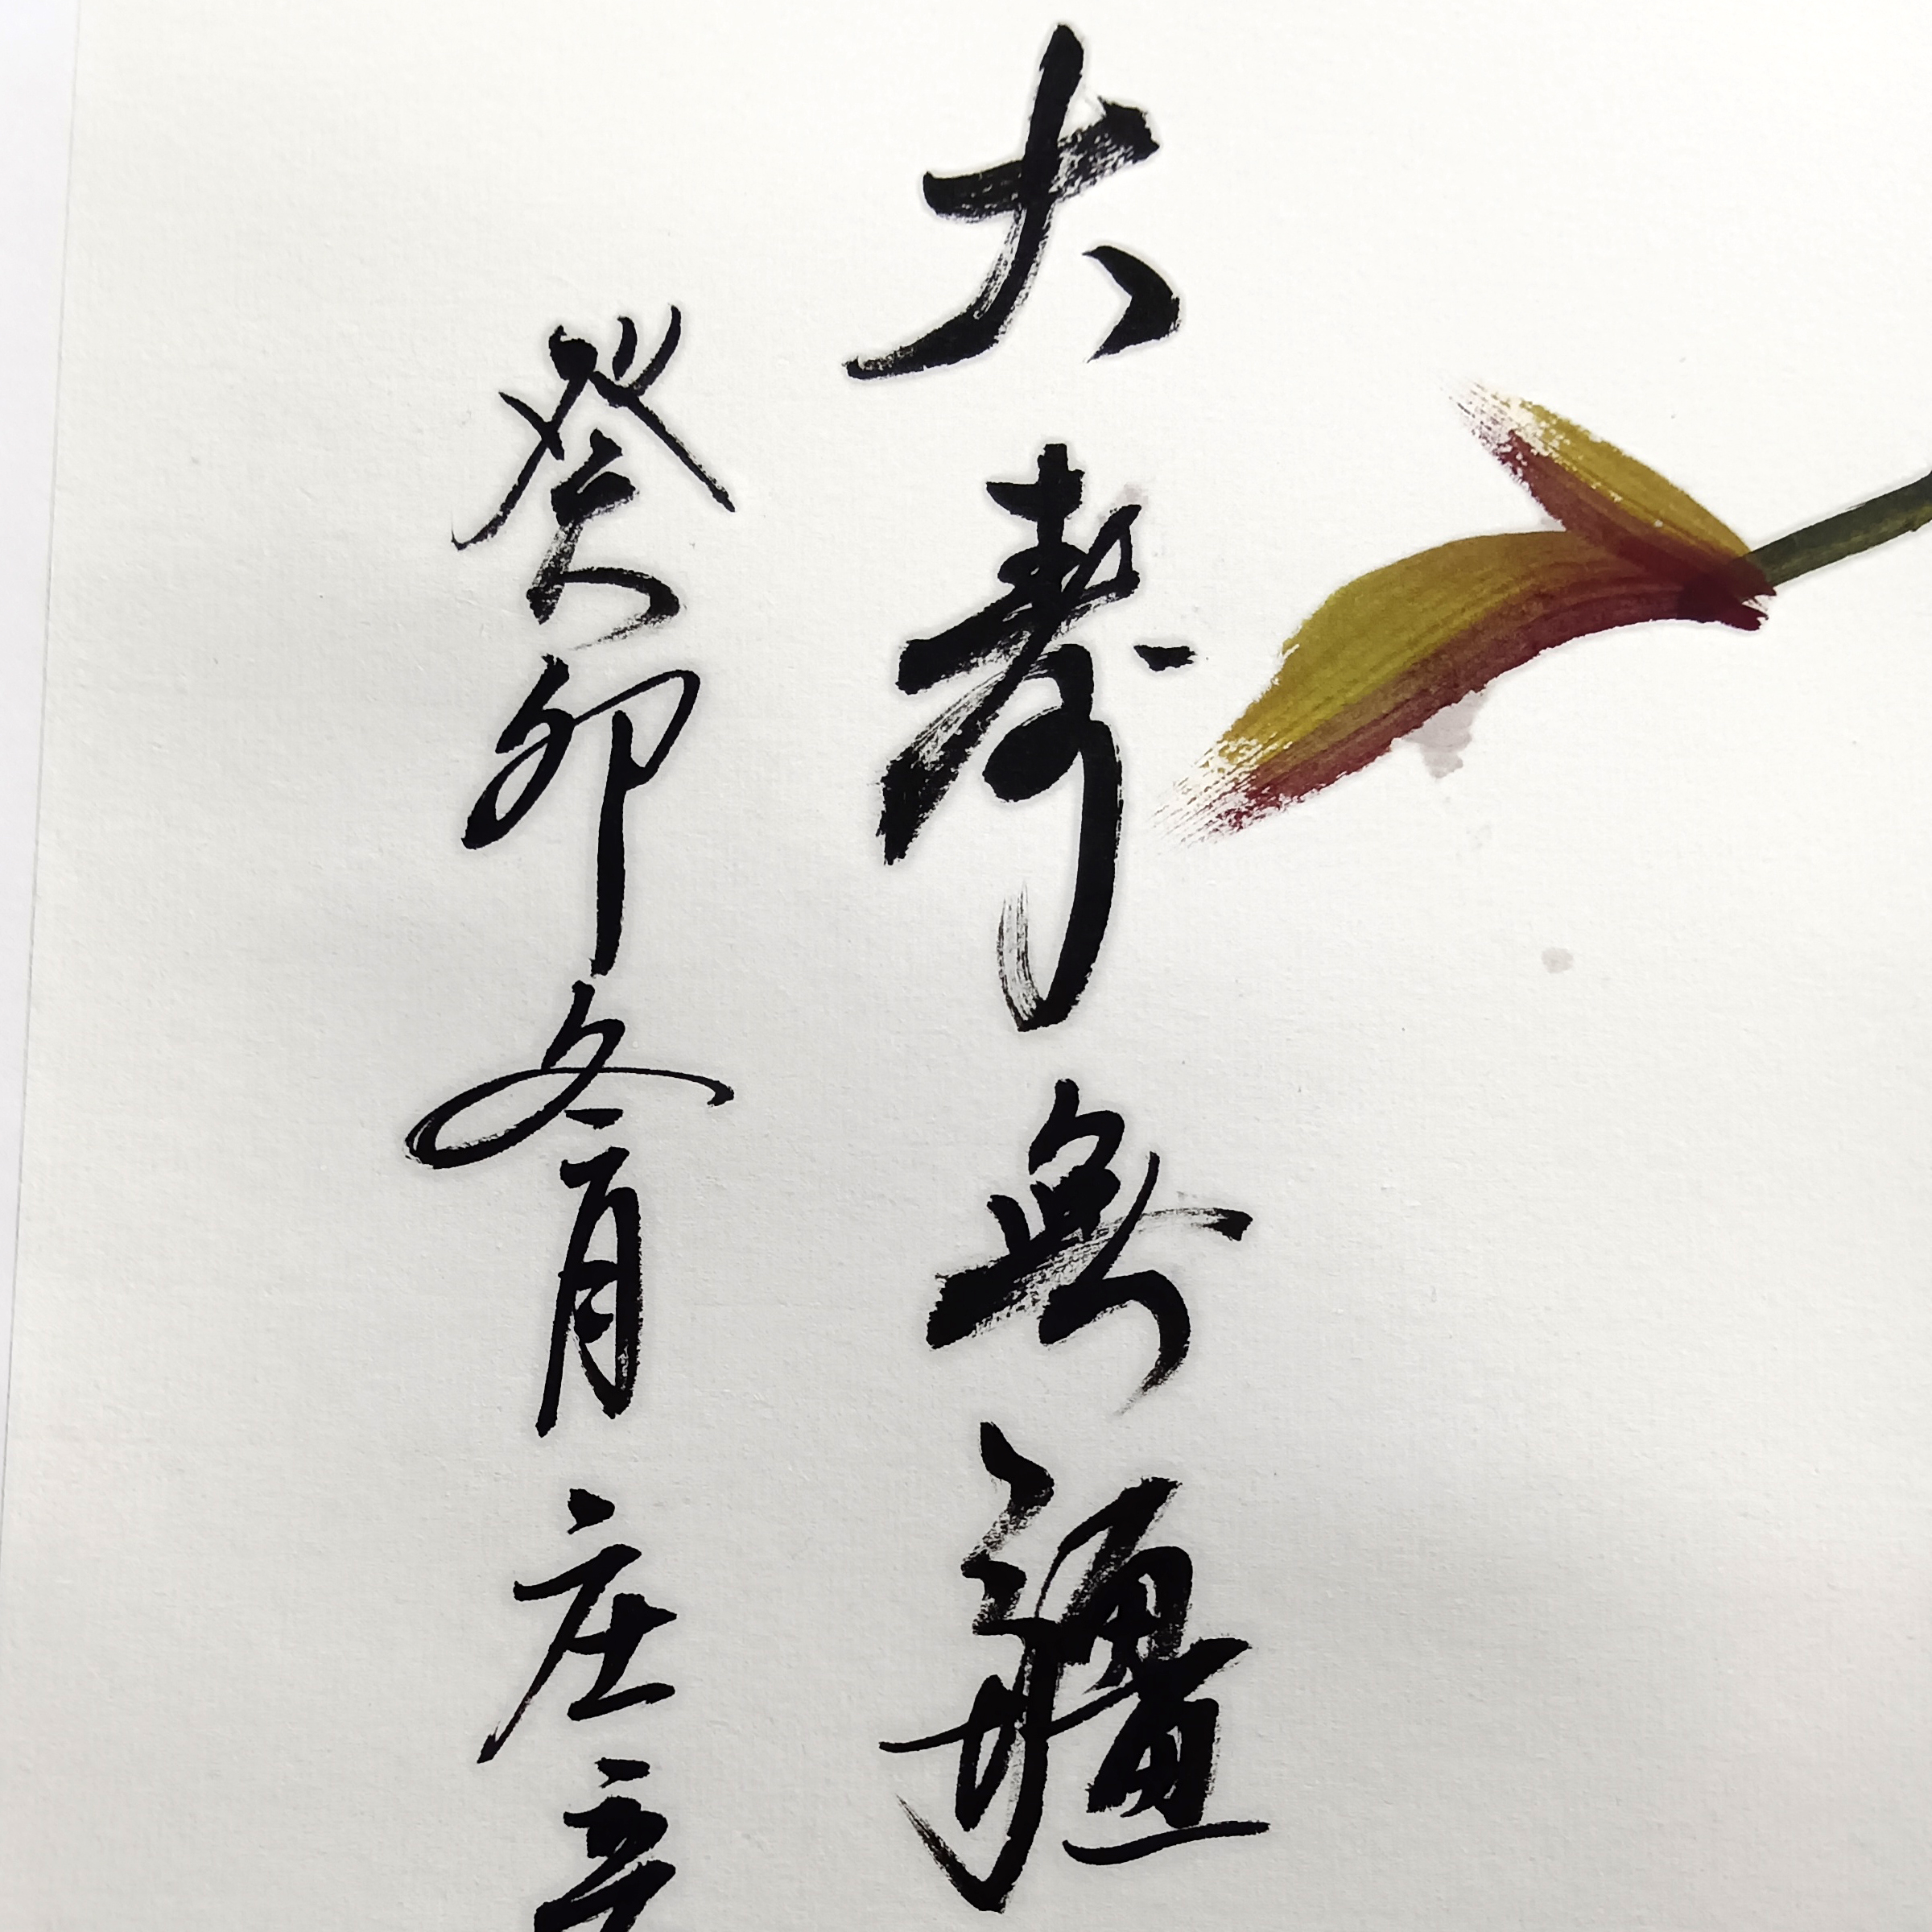 大寿無疆
癸卯冬月庄